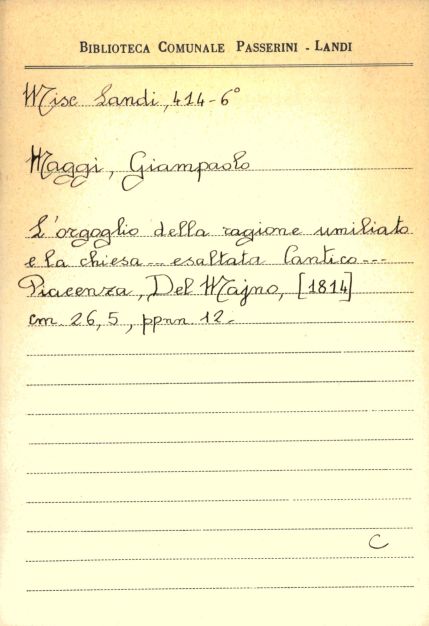 BIBLIOTECA COMUNALE PASSERINI - LANDI
Misc Landi, 414-6°
Maggi, Giampaolo
L'orgoglio della ragione umiliato
e la chiesa... esaltata Cantico...
Piacenza, Del Majno, [1814]
cm. 26,5, ppnn 12.
C